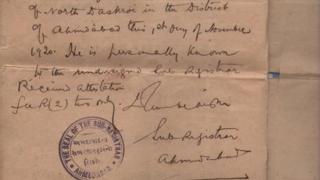 of North Daskroi in the District
of Ahmedabad this 1st day of November
1920. He is personally known
to the undersigned Sub Registrar
Received attestation
fee R(2) two only.
Sub Registrar
Ahmedabad
THE SEAL OF THE SUB-REGISTRAR
AHMEDABAD